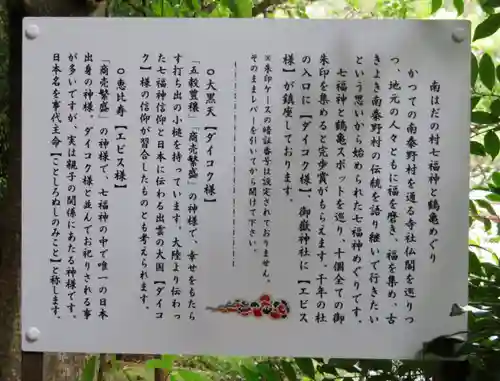 南はだの村七福神と鶴亀めぐり
かつての南秦野村を通る寺社仏閣を巡りつ
つ、地元の人々とともに福を磨き、福を集め、古
きよき南秦野村の伝統を語り継いで行きたい
という思いから始められた七福神めぐりです。
七福神と鶴亀スポットを巡り、十個全ての御
朱印を集めると完歩賞がもらえます。千年の社
の入口に【ダイコク様】、御嶽神社に【エビス
様】が鎮座しております。
※朱印ケースの暗証番号は設定されておりません。
そのままレバーを引いてから開けて下さい。
○大黒天【ダイコク様】
「五穀豊穣」「商売繁盛」の神様で、幸せをもたら
す打ち出の小槌を持っています。大陸より伝わっ
た七福神信仰と日本に伝わる出雲の大国【ダイコ
ク】様の信仰が習合したものとも考えられます。
○恵比寿【エビス様】
「商売繁盛」の神様で、七福神の中で唯一の日本
出身の神様。ダイコク様と並んでお祀りされる事
が多いですが、実は親子の関係にあたる神様です。
日本名を事代主命【ことしろぬしのみこと】と称します。